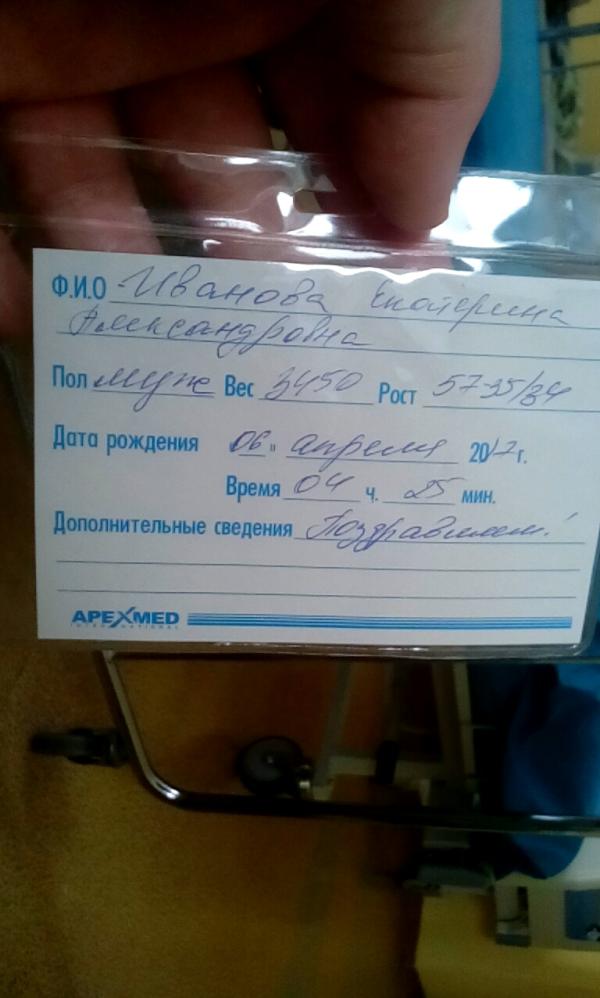 Ф.И.О Иванова Екатерина
Александровна
Пол муж Вес 3450 Рост 57-35/34
Дата рождения 06 " апреля 2017 г.
Время 04 ч. 25 мин.
Дополнительные сведения Поздравляем!
APEXMED
INTERNATIONAL